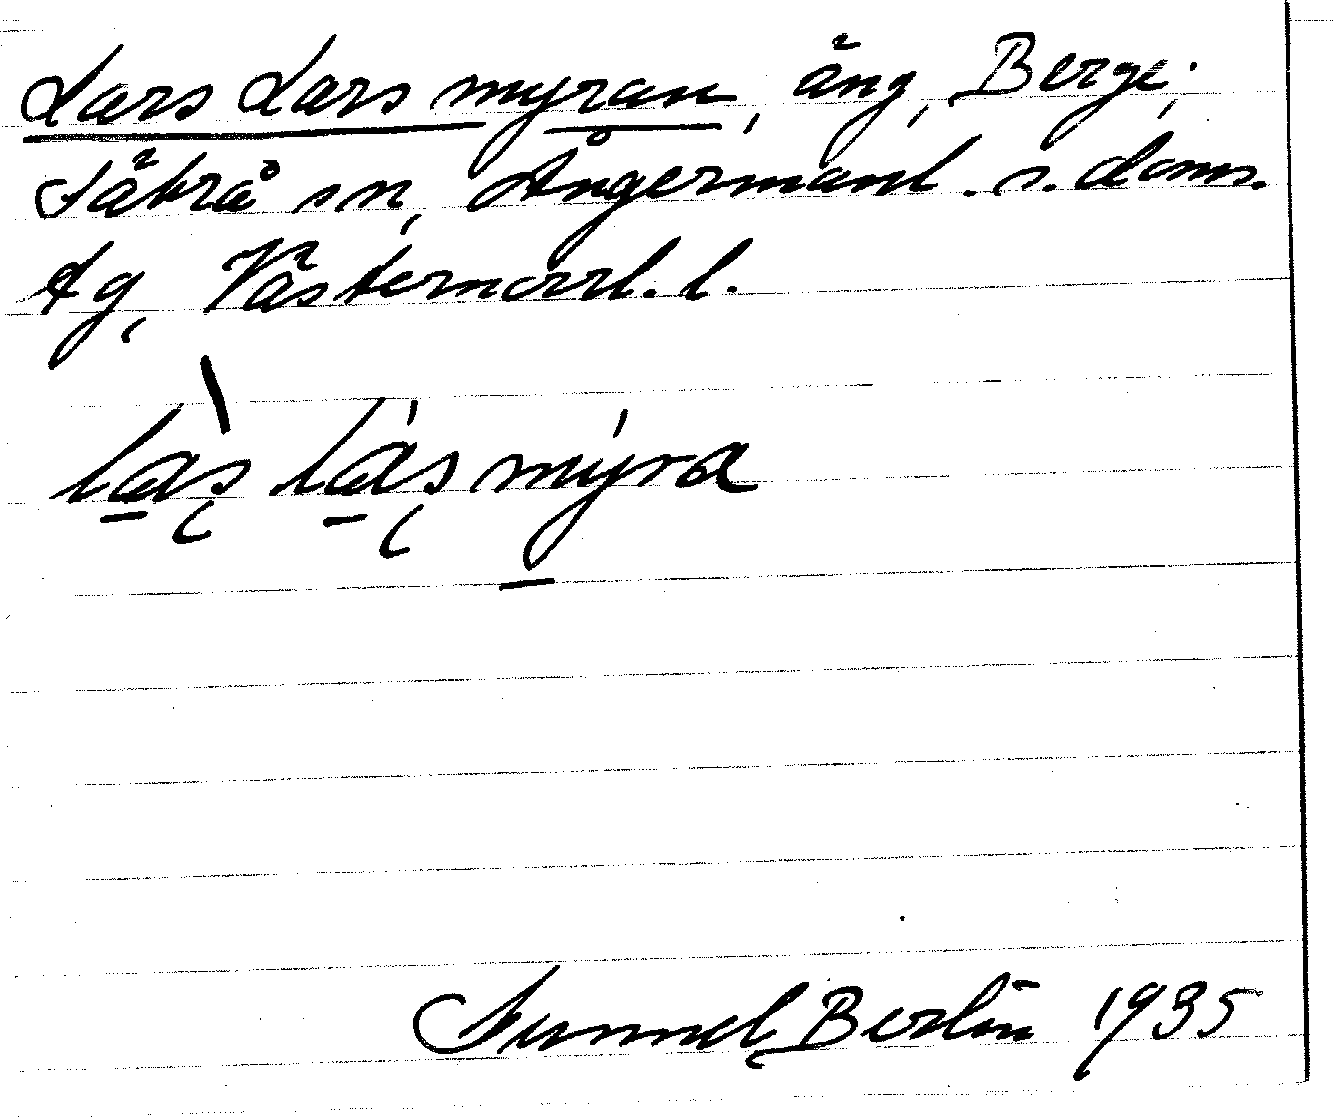 Lars Lars myran, äng, Berge,
Säbrå sn, Ångermanl. s. doms.
tg, Västernorrl. l.
là̱s̨ lá̱s̨ mýra
Gunnel Berlin 1935